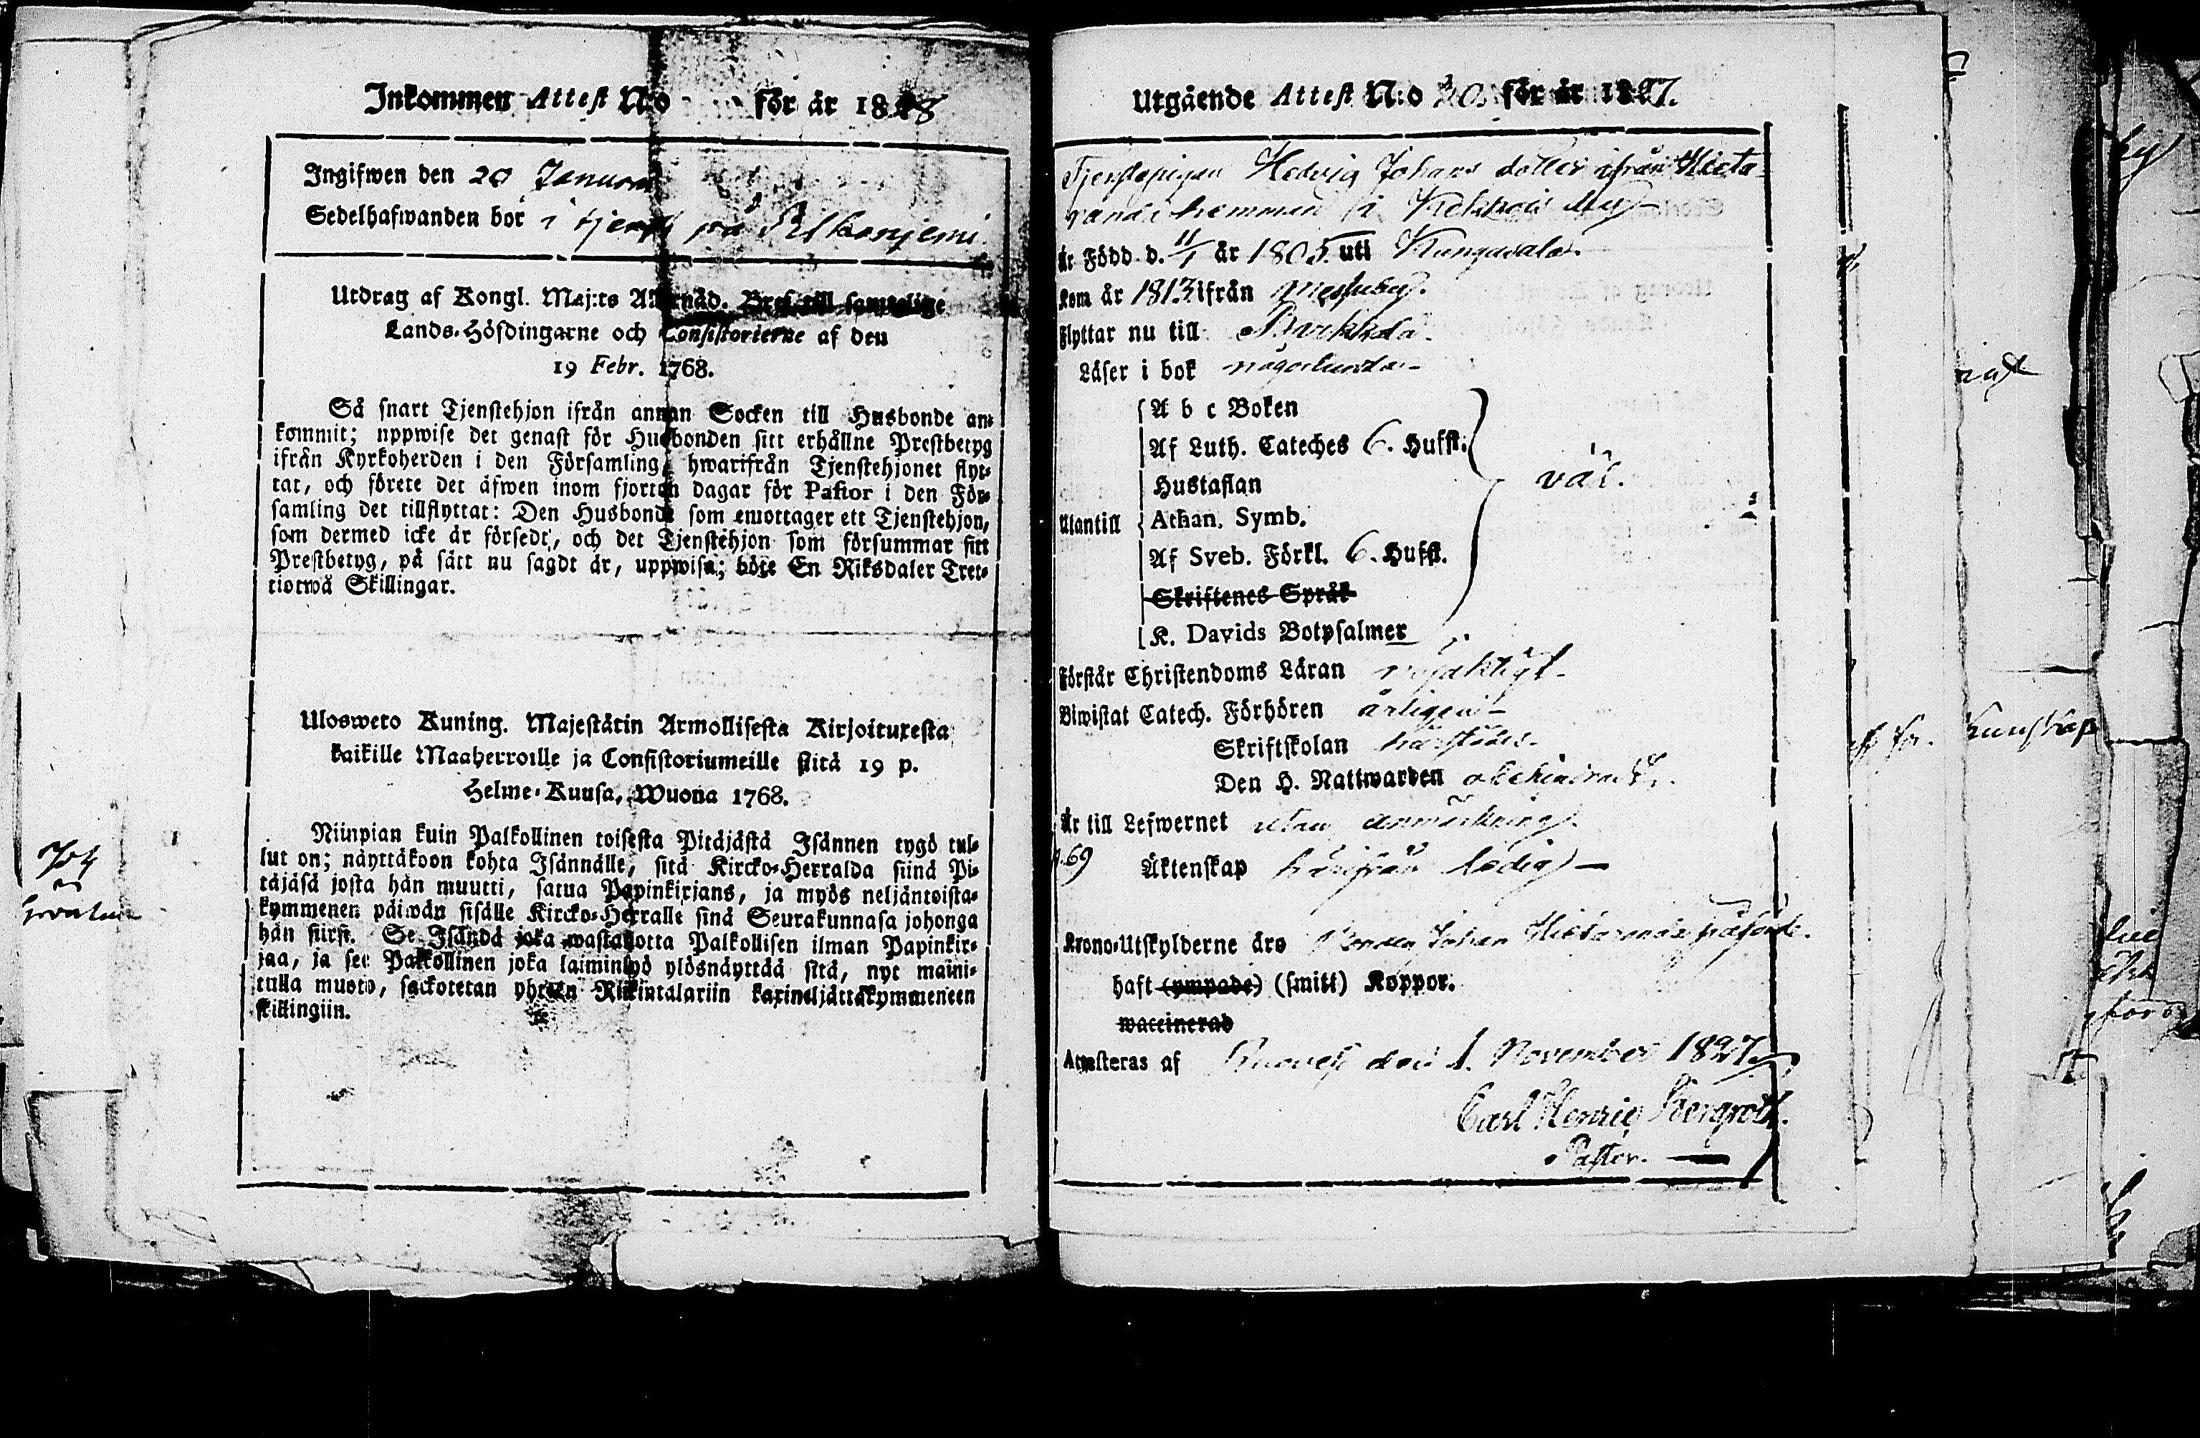 Inkommen Attest N:o för år 1828
Ingifwen den 20 Januari
Sedelhafwanden bor i tjenst på Pelkenjemi
Utdrag af Kongl. Maj:ts Allernåd. Bref till samtelige
Lands-Höfdingarne och Consistorierne af den
19 Febr. 1768.
Så snart Tjenstehjon ifrån annan Socken till Husbonde an-
kommit; uppwise det genast för Husbonden sitt erhållne Prestbetyg
ifrån Kyrkoherden i den Församling, hwarifrån Tjenstehjonet flyt-
tat, och förete det äfwen inom fjorton dagar för Pastor i den För-
samling det tillflyttat: Den Husbonde som emottager ett Tjenstehjon,
som dermed icke är försedt, och det Tjenstehjon som försummar sitt
Prestbetyg, på sätt nu sagdt är, uppwisa; böte En Riksdaler Tret-
tiotwå Skillingar.
Ulosweto Kuning. Majestätin Armollisesta Kirjoituxesta
kaikille Maaherroille ja Consistoriumeille siitä 19 p.
Helme-Kuusa, Wuona 1768.
Niinpian kuin Palkollinen toisesta Pitäjästä Isännen tygö tul-
lut on; näyttäkoon kohta Isännälle, sitä Kircko-Herralda siinä Pi-
täjäsä josta hän muutti, satua Papinkirjans, ja myös neljäntoista-
kymmenen päiwän sisälle Kircko-Herralle siinä Seurakunnasa johonga
hän siirsi. Se Isändä joka wastanotta Palkollisen ilman Papinkir-
jaa, ja se Palkollinen joka laiminlyö ylösnäyttää sitä, nyt maini-
tulla muoto, sackotetan yhteen Riikintalariin kaxineljättäkymmeneen
skillingiin.
Utgående Attest N:o 30. för år 1827.
Tjenstepigan Hedvig Johans dotter ifrån Hieta-
randa hemman i Kekkois by
Är Född d. 11/1 år 1805. uti Kungasala.
Kom år 1813 ifrån Messuby.
Flyttar nu till
Läser i bok någorlunda.
A b c Boken
Af Luth. Cateches 6. Hufst.
Hustaflan
väl.
Utantill Athan. Symb.
Af Sveb. Förkl. 6. Hufst.
Skriftenes Språk
K. Davids Botpsalmer
Förstår Christendoms Läran nöjaktigt.
Biwistat Catech. Förhören årligen
Skriftskolan härstädes.
Den H. Nattwarden obehindradt.
Är till Lefwernet utan anmärkning.
p. 69 Äktenskap härifrån ledig
Krono-Utskylderne äro Bonden Johan Hietaranda påförde.
haft (ympade) (smitt) Koppor.
waccinerad
Attesteras af Ruovesi den 1. November 1827.
Carl Henric Bergroth.
Pastor.
kunskap